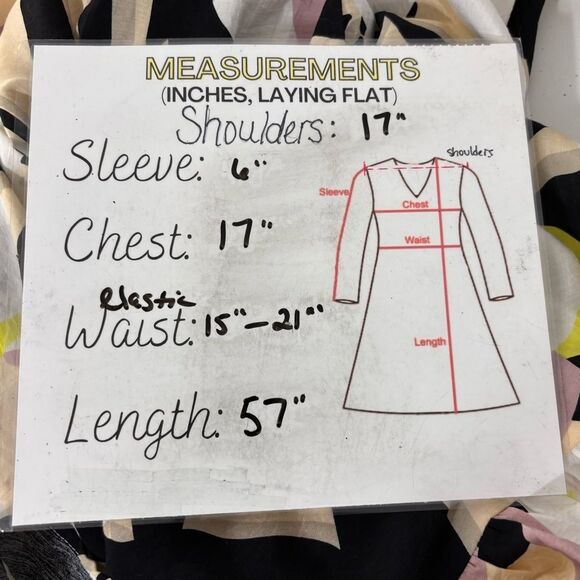 MEASUREMENTS
(INCHES, LAYING FLAT)
Shoulders: 17"
Sleeve: 6"
Chest: 17"
elastic
Waist: 15" - 21"
Length: 57"
shoulders
Sleeve
Chest
Waist
Length